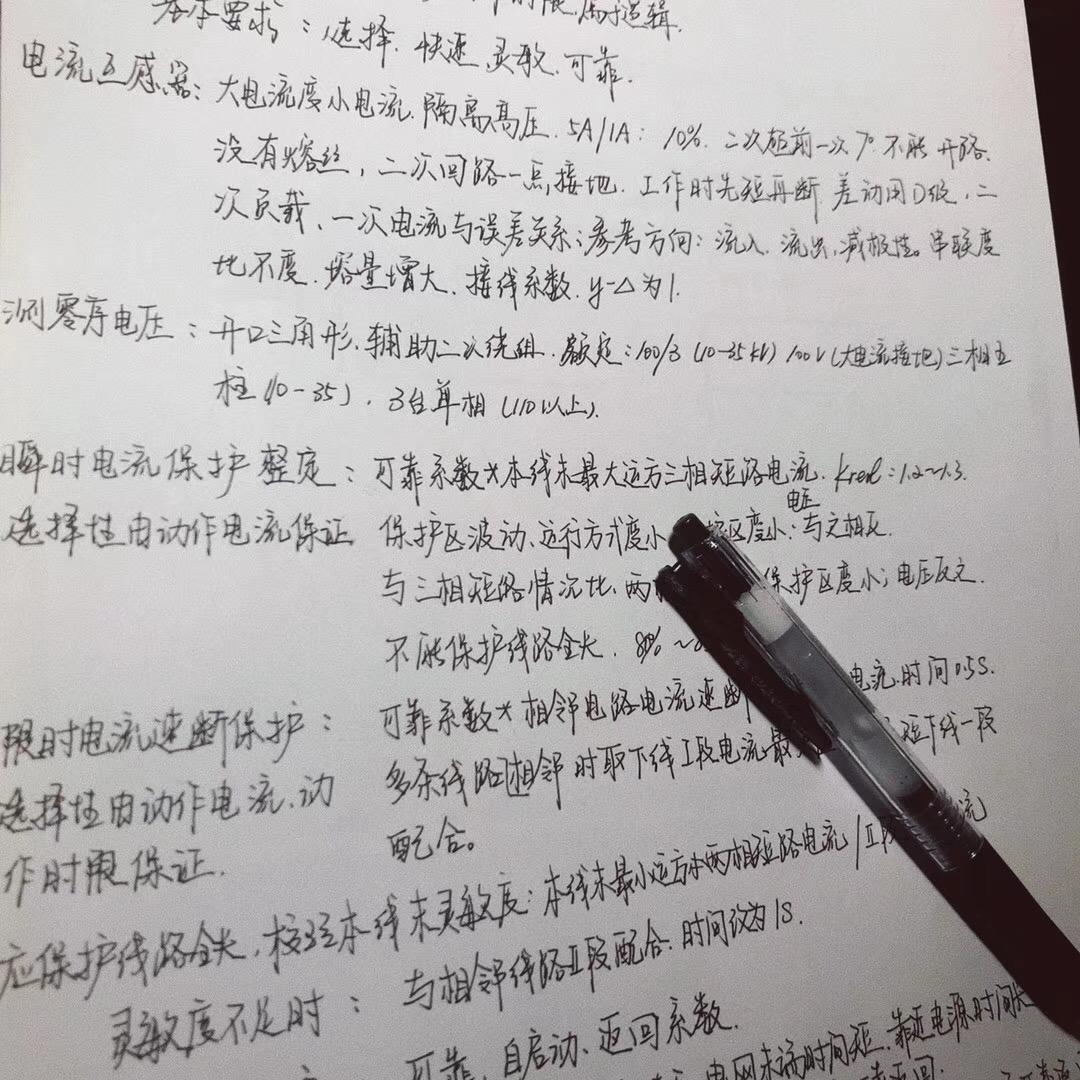 时限，属于逻辑.
基本要求：选择. 快速. 灵敏. 可靠.
电流互感器：大电流变小电流. 隔离高压. 5A/1A：10%. 二次超前一次7°不能开路.
没有熔丝，二次回路一点接地. 工作时先短再断 差动用D级. 二
次负载、一次电流与误差关系；参考方向：流入. 流出，减极性。串联变
比不变. 容量增大、接线系数. y-△为1.
测零序电压：开口三角形. 辅助二次绕组. 额定：100/3 (10-35kV) 100V (大电流接地) 三相五
柱 (10-35). 3台单相 (110以上).
瞬时电流保护整定：可靠系数×本线末最大运方三相短路电流. Krel：1.2~1.3.
电压
选择性由动作电流保证 保护区波动、运行方式变小 护区变小；与之相反.
与三相短路情况比、两 保护区变小；电压反之.
不能保护线路全长. 80% ~
限时电流速断保护：可靠系数×相邻电路电流速断 电流. 时间0.5S.
选择性由动作电流、动 多条线路相邻时取下线I段电流最 短下线一段
作时限保证. 配合。
应保护线路全长，校验本线末灵敏度：本线末最小运方下两相短路电流/II段 流
灵敏度不足时：与相邻线路II段配合. 时间设为1S.
可靠、自启动、返回系数.
电网末端时间短、靠近电源时间长